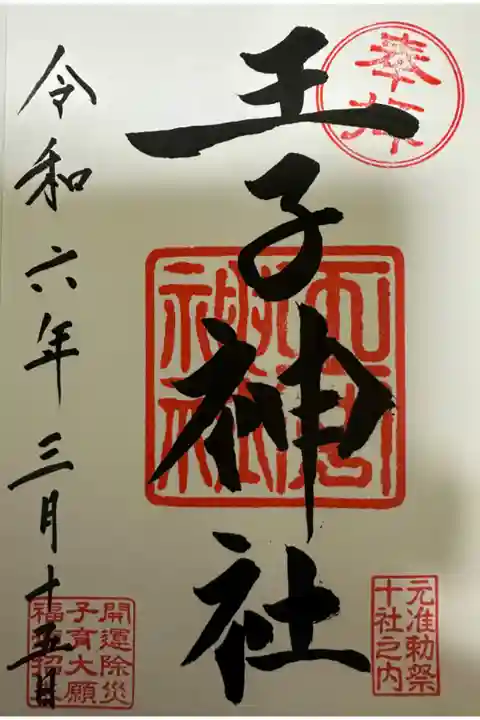 奉拝
王子神社
王子神社
元准勅祭
十社之内
令和六年三月十五日
開運除災
子育大願